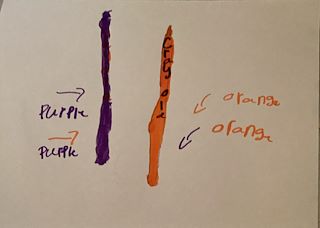 Crayola
purple
purple
orange
orange